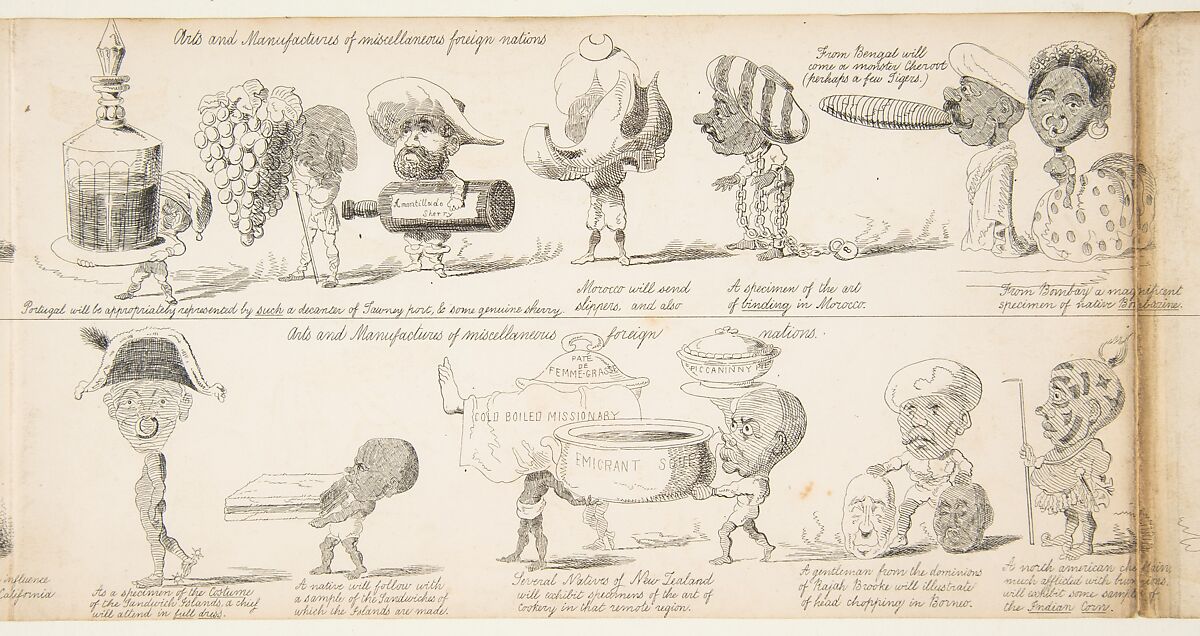 Arts and Manufactures of miscellaneous foreign nations
From Bengal will
come a monster Cheroot
(perhaps a few Tigers.)
Amontillado
Sherry
Portugal will be appropriately represented by such a decanter of Tawney port, & some genuine sherry.
Morocco will send
slippers, and also
A specimen of the art
of binding in Morocco.
From Bombay a magnificent
specimen of native Bombazine.
Arts and Manufactures of miscellaneous foreign nations.
PATÉ
DE
FEMME-GRASSE
PICCANINNY PIE
COLD BOILED MISSIONARY
EMIGRANT SOUP
influence
California
As a specimen of the Costume
of the Sandwich Islands, a chief
will attend in full dress.
A native will follow with
a sample of the Sandwiches of
which the Islands are made.
Several Natives of New Zealand
will exhibit specimens of the art of
cookery in that remote region.
A gentleman from the dominions
of Rajah Brooke will illustrate
of head chopping in Borneo.
A north american chieftain,
much afflicted with bunions,
will exhibit some samples of
the Indian Corn.